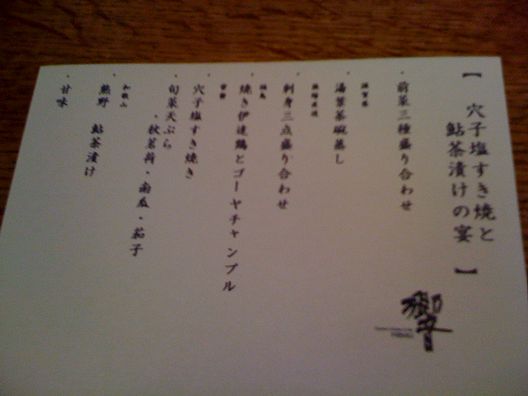 【 穴子塩すき焼と
鮎茶漬けの宴 】
・前菜三種盛り合わせ
・湯葉茶碗蒸し
・刺身三点盛り合わせ
・焼き伊達鶏とゴーヤチャンプル
・穴子塩すき焼き
・旬菜天ぷら
・秋茗荷・南瓜・茄子
和歌山
・熊野 鮎茶漬け
・甘味
響